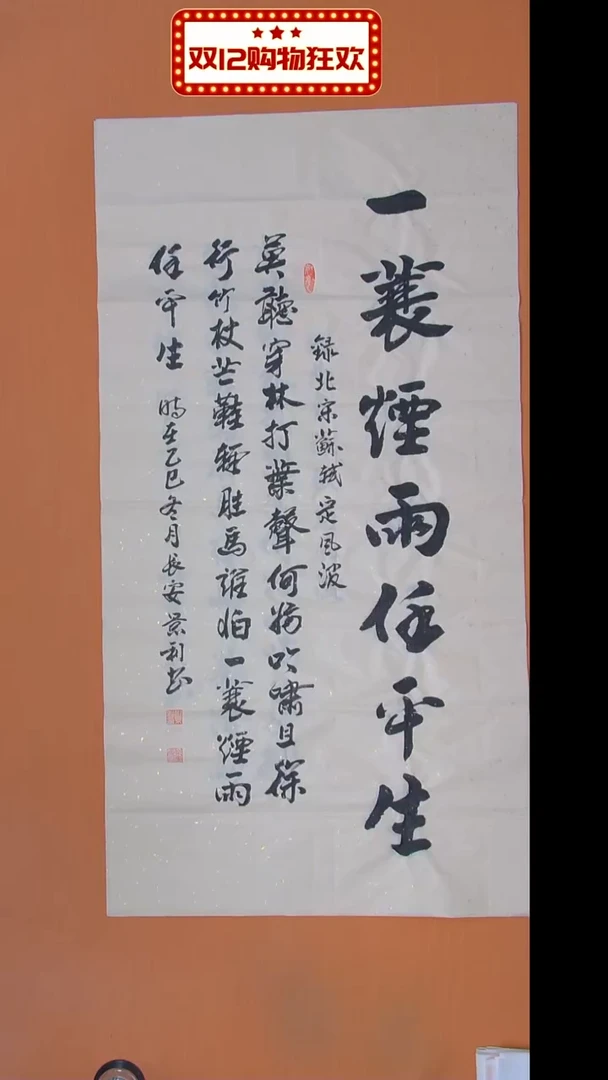 双12购物狂欢
一蓑煙雨任平生
錄北宋蘇軾定風波
莫聽穿林打葉聲何妨吟嘯且徐
行竹杖芒鞋輕勝馬誰怕一蓑煙雨
任平生
時在乙巳冬月長安景利书